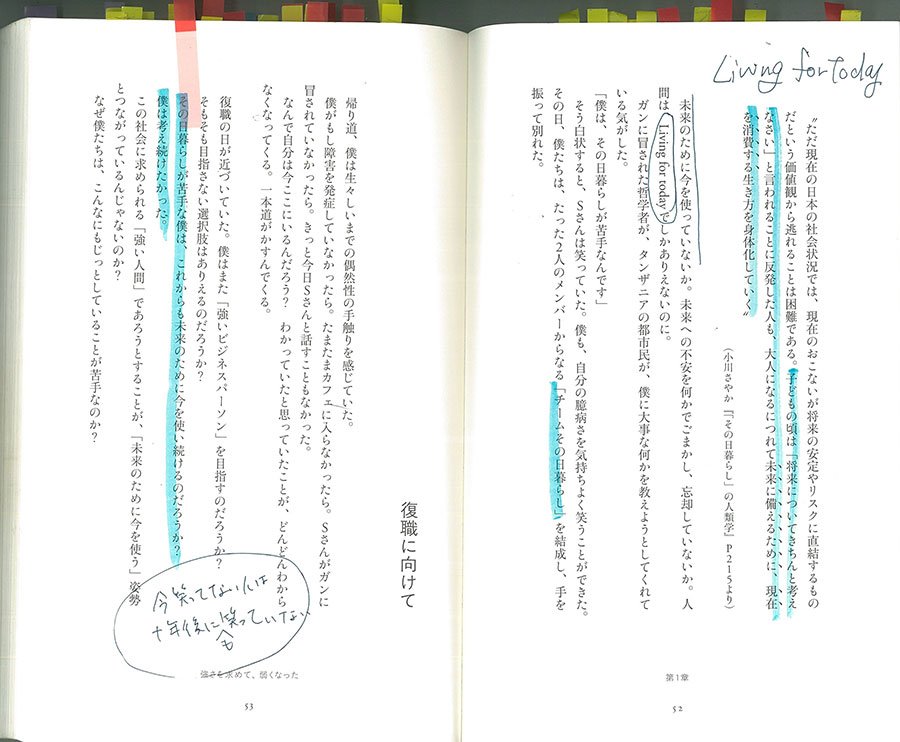 Living for Today
"ただ現在の日本の社会状況では、現在のおこないが将来の安定やリスクに直結するもの
だという価値観から逃れることは困難である。子どもの頃は「将来についてきちんと考え
なさい」と言われることに反発した人も、大人になるにつれて未来に備えるために、現在
を消費する生き方を身体化していく"
(小川さやか『「その日暮らし」の人類学』P215より)
未来のために今を使っていないか。未来への不安を何かでごまかし、忘却していないか。人
間は Living for today でしかありえないのに。
ガンに冒された哲学者が、タンザニアの都市民が、僕に大事な何かを教えようとしてくれて
いる気がした。
「僕は、その日暮らしが苦手なんです」
そう白状すると、Sさんは笑っていた。僕も、自分の臆病さを気持ちよく笑うことができた。
その日、僕たちは、たった2人のメンバーからなる「チームその日暮らし」を結成し、手を
振って別れた。
第1章
52
復職に向けて
帰り道、僕は生々しいまでの偶然性の手触りを感じていた。
僕がもし障害を発症していなかったら。たまたまカフェに入らなかったら。Sさんがガンに
冒されていなかったら。きっと今日Sさんと話すこともなかった。
なんで自分は今ここにいるんだろう? わかっていたと思っていたことが、どんどんわから
なくなってくる。一本道がかすんでくる。
復職の日が近づいていた。僕はまた「強いビジネスパーソン」を目指すのだろうか?
そもそも目指さない選択肢はありえるのだろうか?
その日暮らしが苦手な僕は、これからも未来のために今を使い続けるのだろうか?
僕は考え続けたかった。
この社会に求められる「強い人間」であろうとすることが、「未来のために今を使う」姿勢
とつながっているんじゃないのか?
なぜ僕たちは、こんなにもじっとしていることが苦手なのか?
今笑ってない人は
十年後に笑っていない
も
強さを求めて、弱くなった
53